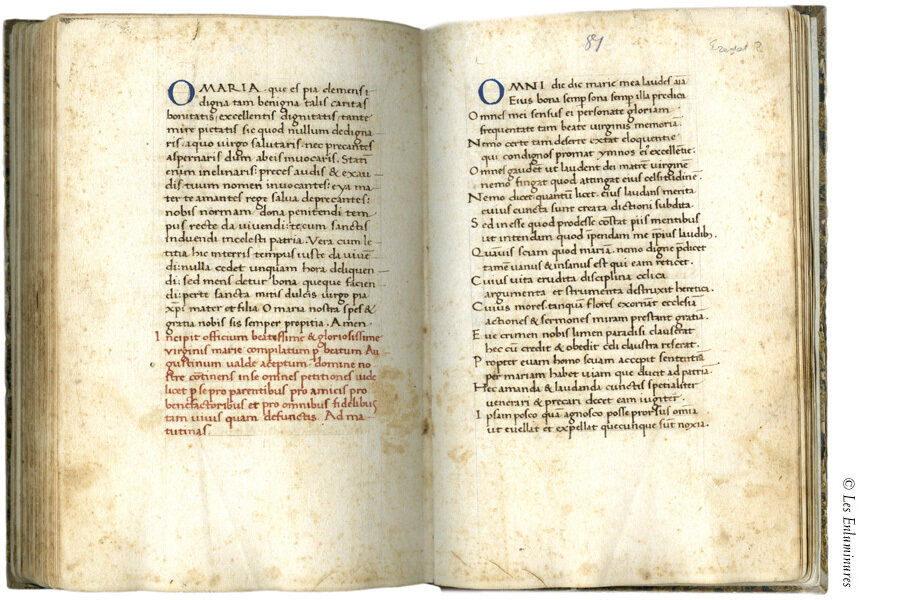 O MARIA que es pia clemens &
digna tam benigna talis caritas
bonitatis excellentis dignitatis tante
mire pietatis sic quod nullum dedigna
ris aquo virgo salutaris. nec precantes
aspernaris dum abeis invocaris. Statī
enim inclinaris: preces audis & exau
dis tuum nomen invocantes: eya ma
ter te amantes rege salva deprecantes:
nobis normam dona penitendi tem
pus recte da vivendi: tecum sanctis
induendi incelesti patria. Vera cum le
titia hic interris tempus iuste da vivē
di: nulla cedet unquam hora deliquen
di: sed mens detur bona queque facien
di: perte sancta mitis dulcis virgo pia
xp̄i mater et filia. O maria nostra spes &
gratia nobis sis semper propitia. Amen
Incipit officium beatissime & gloriosissime
virginis marie compilatum p beatum Au
gustinum valde aceptum domine no
stre cotinens inse omnes petitiones vide
licet p se pro parentibus pro amicis pro
benefactoribus et pro omnibus fidelibus
tam vivis quam defunctis. Ad ma
tutinas.
87
OMNI die dic marie mea laudes aīa
Eius bona semp sona semp illa predica
Omnes mei sensus ei personate gloriam
frequentate tam beate virginis memoriā.
Nemo certe tam deserte extat eloquentie
qui condignos promat ymnos ei' excellētie:
Omnes gaudēt ut laudent dei matrē virginē
nemo fingat quod attingat eius celsitudinē.
Nemo dicet quantū licet eius laudans merita
cuius cuncta sunt creata dictioni subdita.
Sed inesse quod prodesse cōstat piis mentibus
ut intendam quod ipendam me ipsius laudib;
Quāvis sciam quod mariā. nemo digne p̄dicet
tamē vanus & insanus est qui eam reticet.
Cuius vita erudita disciplina celica
argumenta et strumenta destruxit heretica.
Cuius mores tanquā flores exornāt ecclesiā
actiones & sermones miram prestant gratiā.
Eve crimen nobis limen paradisi clauserat
hec cū credit & obedit celi claustra referat.
Propter evam homo scuam accepit sententiā
per mariam habet viam que ducit ad patriā.
Hec amanda & laudanda cunctis spetialiter
venerari & precari decet eam iugiter.
Ipsam posco quā agnosco posse prorsus omia
ut evellat et expellat quecunque sūt noxia.
© Les Enluminures